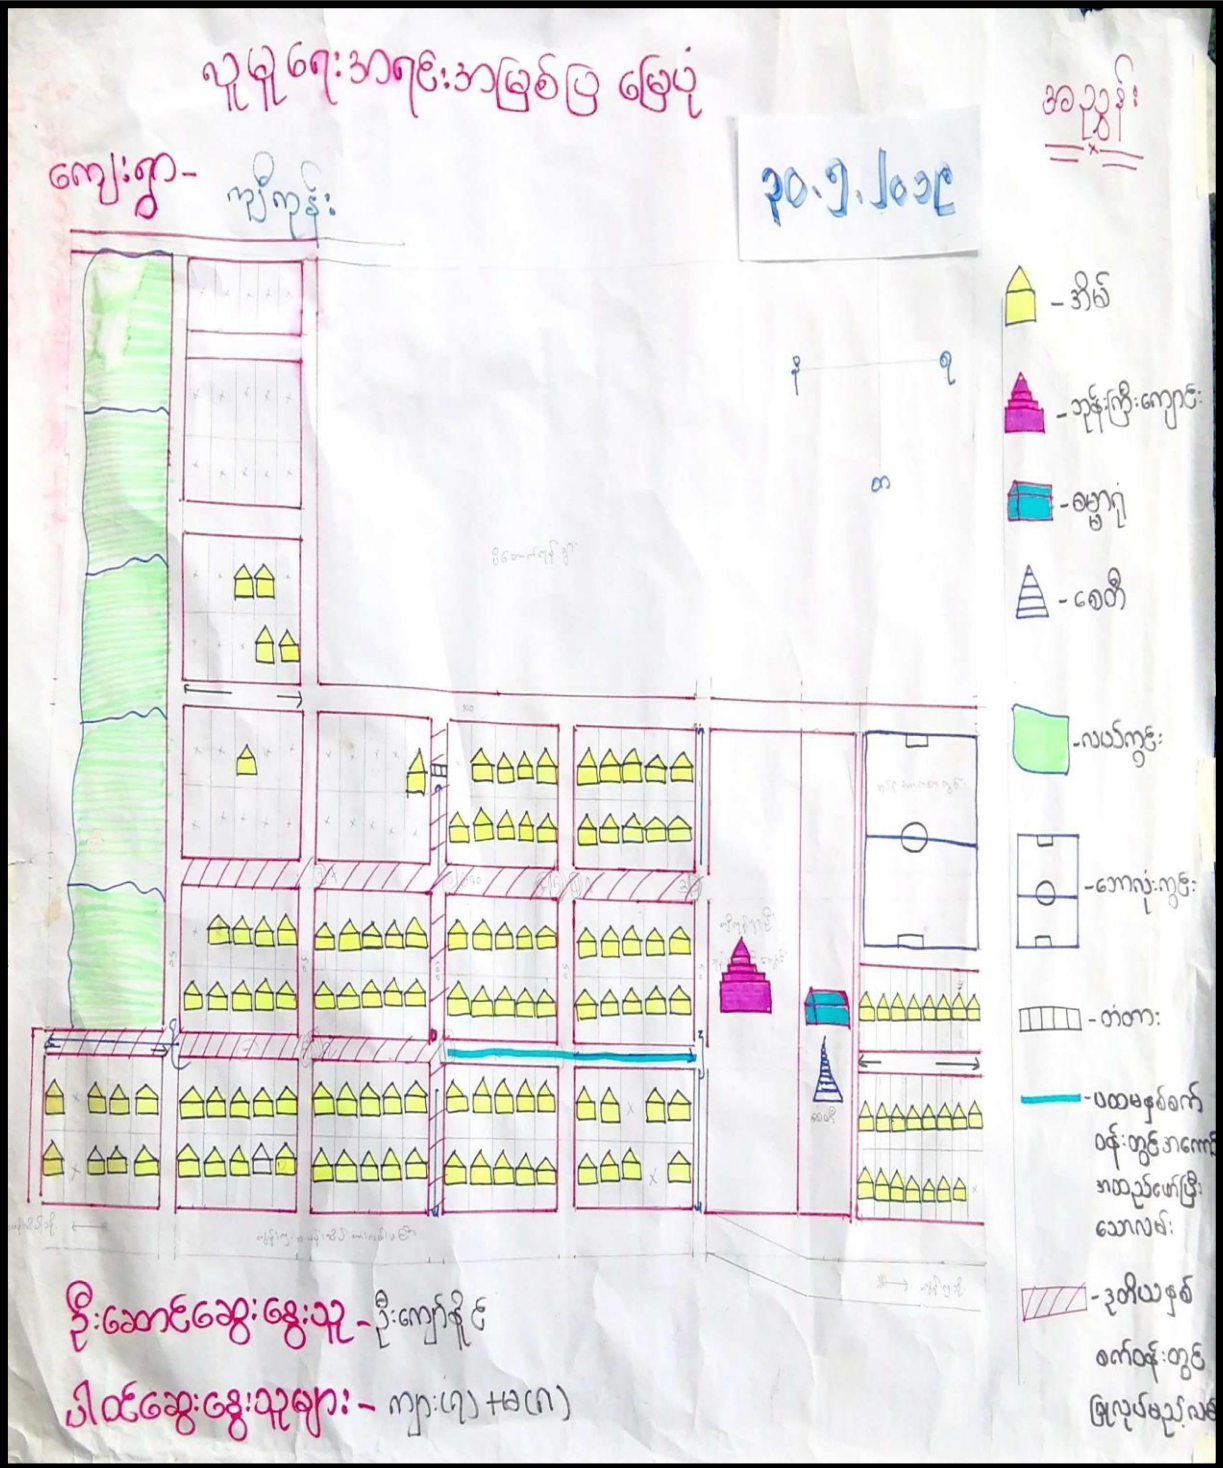 လူမှုရေးအရင်းအမြစ်ပြ မြေပုံ
အညွှန်း
ကျေးရွာ-
ကျီကုန်း
၃၀.၅.၂၀၁၉
-အိမ်
နိ
ရှ
-ဘုန်းကြီးကျောင်း
တ
-ဓမ္မာရုံ
-စေတီ
-လယ်ကွင်း
-ဘောလုံးကွင်း
-တံတား
-ပထမနှစ်စက်
ဝန်းတွင်အကောင်
အထည်ဖော်ပြီး
သောလမ်း
-ဒုတိယနှစ်
စက်ဝန်းတွင်
ပြုလုပ်မည့်လမ်း
ဦးဆောင်ဆွေးနွေးသူ-ဦးကျော်နိုင်
ပါဝင်ဆွေးနွေးသူများ-ကျား(၇)+မ(၈)